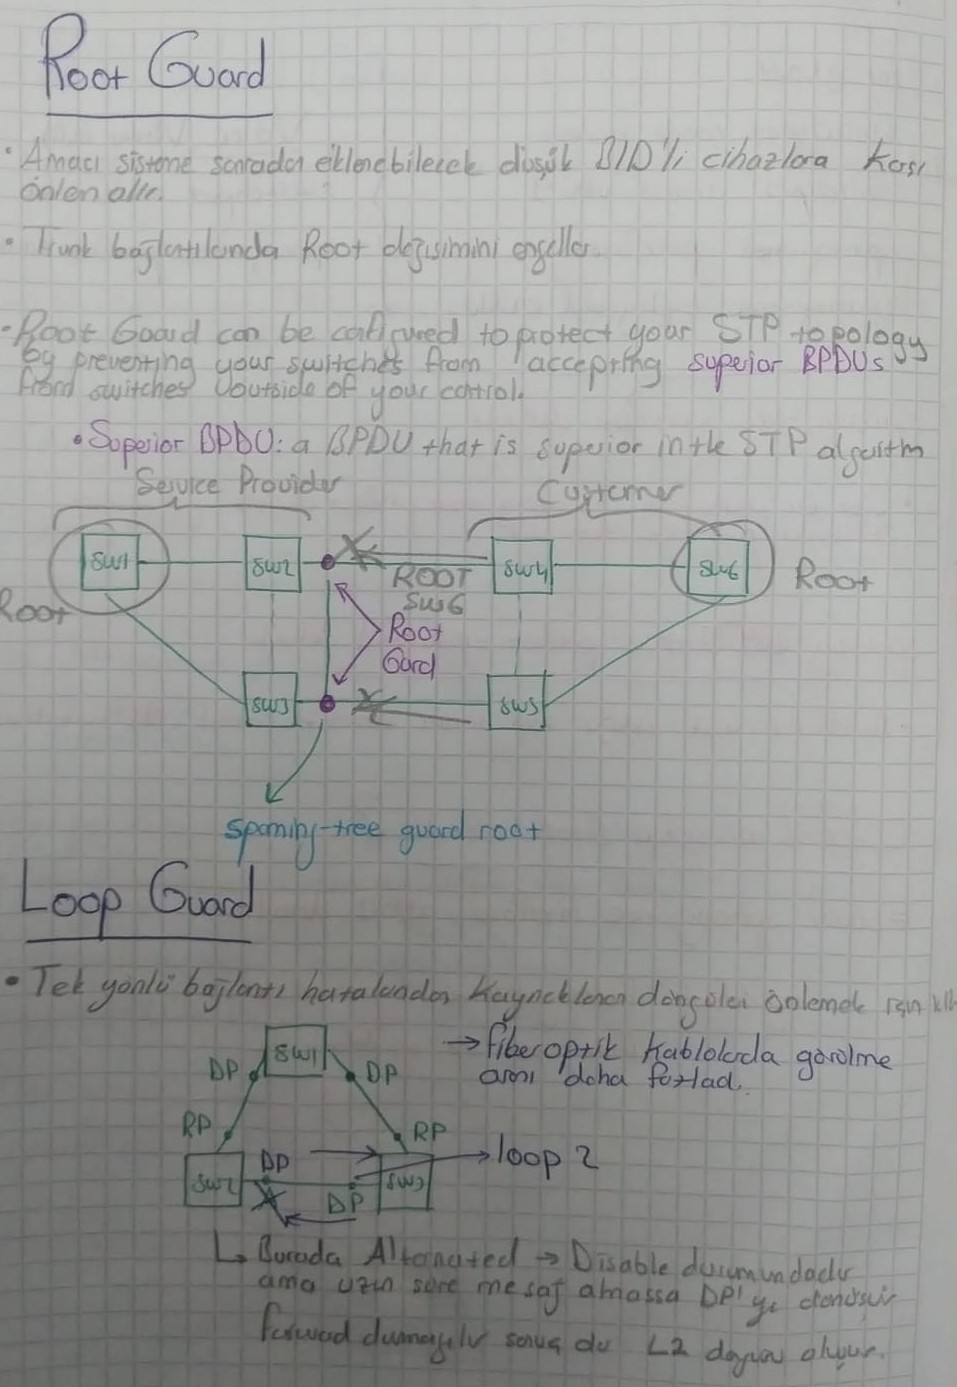 Root Guard
• Amacı sisteme sonradan eklenebilecek düşük BID'li cihazlara karşı
önlem alır.
• Trunk bağlantılarında Root değişimini engeller.
• Root Guard can be configured to protect your STP topology
by preventing your switches from accepting superior BPDUs
from switches outside of your control.
• Superior BPDU: a BPDU that is superior in the STP algorithm
Service Provider Customer
SW1 SW2 SW4 SW6
Root ROOT SW6 Root
Root
Gard
SW3 SW5
spaning-tree guard root
Loop Guard
• Tek yönlü bağlantı hatalarından kaynaklanan döngüleri önlemek için
SW1 → fiberoptik kablolarda görülme
DP DP oranı daha fazladır.
RP RP
DP → loop 2
SW2 DP SW3
↳ Burada Alternated → Disable durumundadır
ama uzun süre mesaj almassa DP'ye dönüşür
forward L2